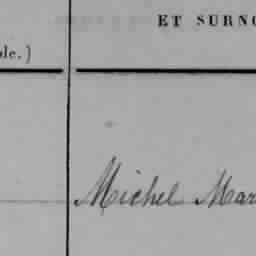 ET SURNO
ble.)
Michel Mar